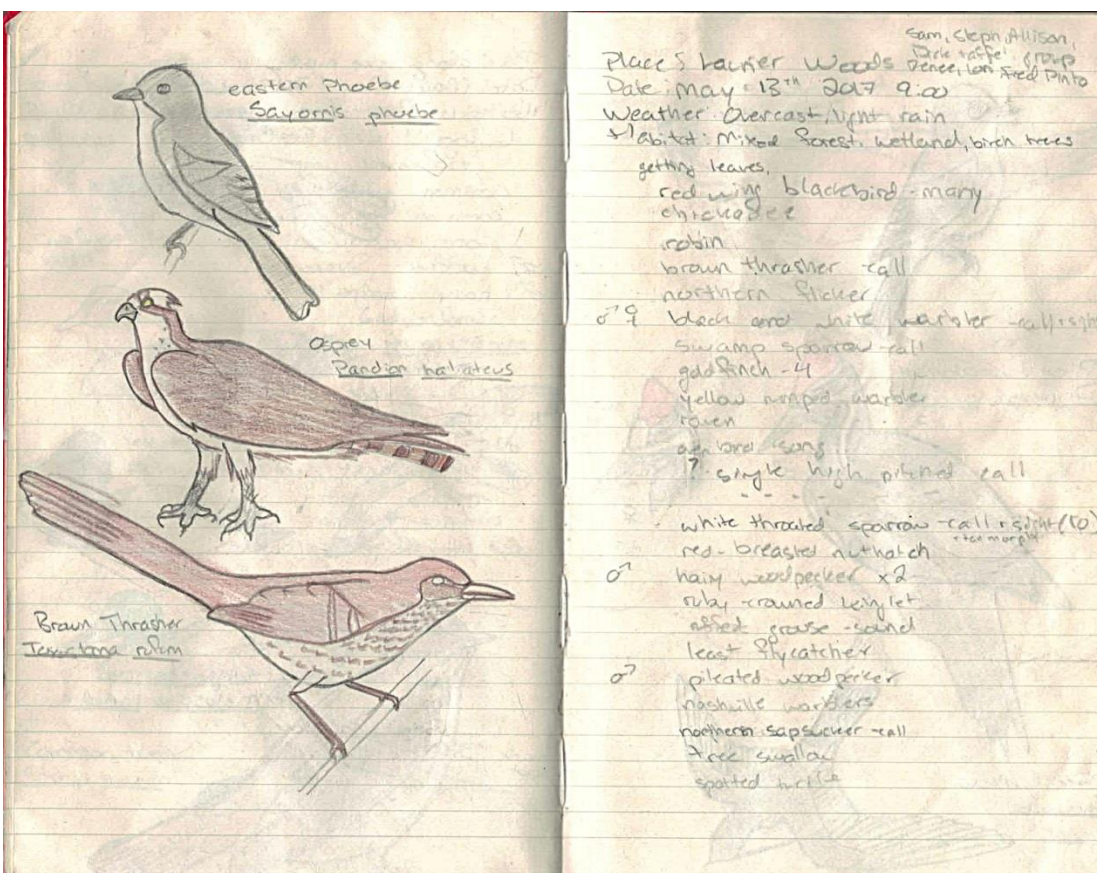 eastern Phoebe
Sayornis phoebe
Osprey
Pandion haliaetus
Brown Thrasher
Toxostoma rufum
Sam, Steph, Allison,
group
Fred Pinto
Place: Laurier Woods
Date: May 13th 2017 9:00
Weather: Overcast, light rain
Habitat: Mixed forest, wetland, birch trees
getting leaves,
red wing blackbird - many
chickadee
robin
brown thrasher - call
northern flicker
♂ ♀ black and white warbler - call + sight
swamp sparrow - call
goldfinch - 4
yellow rumped warbler
raven
oven bird song
? single high pitched call
- - - -
white throated sparrow - call + sight
red-breasted nuthatch
♂ hairy woodpecker x2
ruby-crowned kinglet
ruffed grouse - sound
least flycatcher
♂ pileated woodpecker
nashville warblers
northern sapsucker - call
tree swallow
spotted turtle